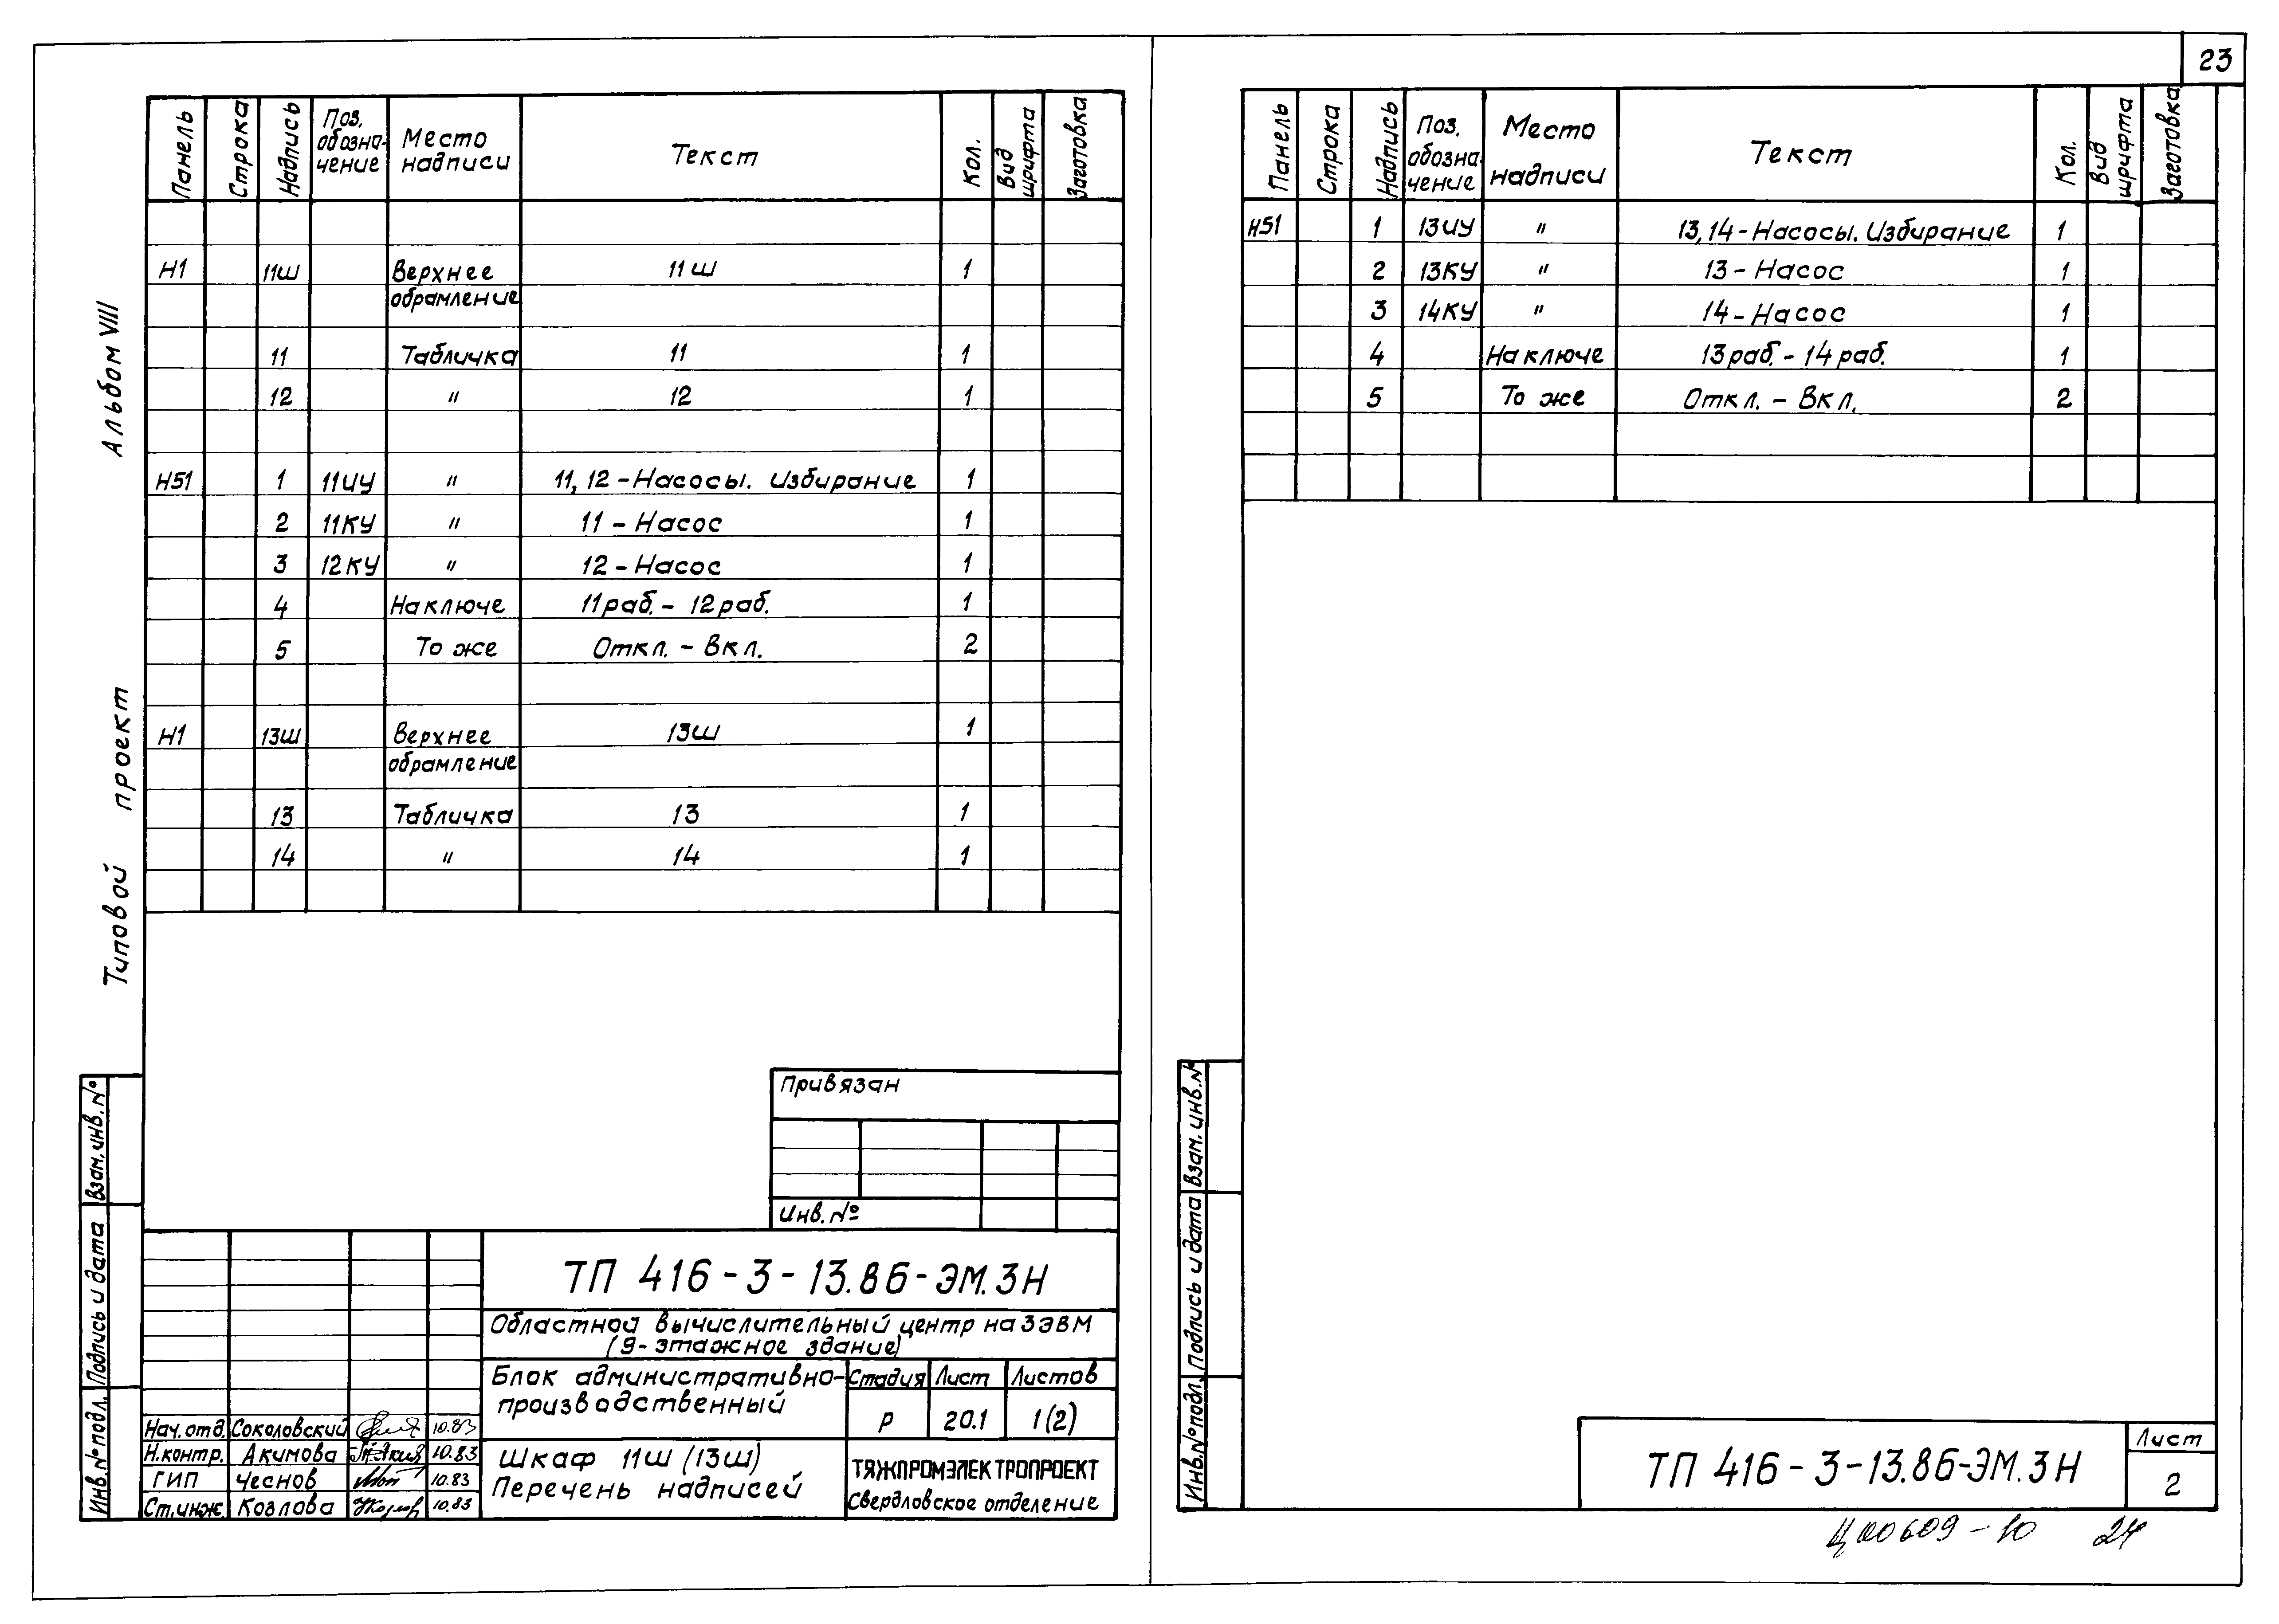 23
Альбом VIII
Типовой проект
Панель Строка Надпись Поз. обозна-чение Место надписи Текст Кол. Вид шрифта Заготовка
Н1 11Ш Верхнее 11Ш 1
обрамление
11 Табличка 11 1
12 " 12 1
Н51 1 11ИУ " 11, 12 - Насосы. Избирание 1
2 11КУ " 11 - Насос 1
3 12КУ " 12 - Насос 1
4 На ключе 11 раб. - 12 раб. 1
5 То же Откл. - Вкл. 2
Н1 13Ш Верхнее 13Ш 1
обрамление
13 Табличка 13 1
14 " 14 1
Привязан
Инв. №
ТП 416-3-13.86-ЭМ.ЗН
Областной вычислительный центр на 3 ЭВМ
(9-этажное здание)
Блок административно-
производственный
Стадия Лист Листов
Р 20.1 1(2)
Нач. отд. Соколовский 10.83
Н. контр. Акимова 10.83
ГИП Чеснов 10.83
Ст. инж. Козлова 10.83
Шкаф 11Ш (13Ш)
Перечень надписей
ТЯЖПРОМЭЛЕКТРОПРОЕКТ
Свердловское отделение
Взам. инв. №
Подпись и дата
Инв. № подл.
Панель Строка Надпись Поз. обозна-чение Место надписи Текст Кол. Вид шрифта Заготовка
Н51 1 13ИУ " 13, 14 - Насосы. Избирание 1
2 13КУ " 13 - Насос 1
3 14КУ " 14 - Насос 1
4 На ключе 13 раб. - 14 раб. 1
5 То же Откл. - Вкл. 2
Взам. инв. №
Подпись и дата
Инв. № подл.
ТП 416-3-13.86-ЭМ.ЗН
Лист
2
Ц00609-10 24